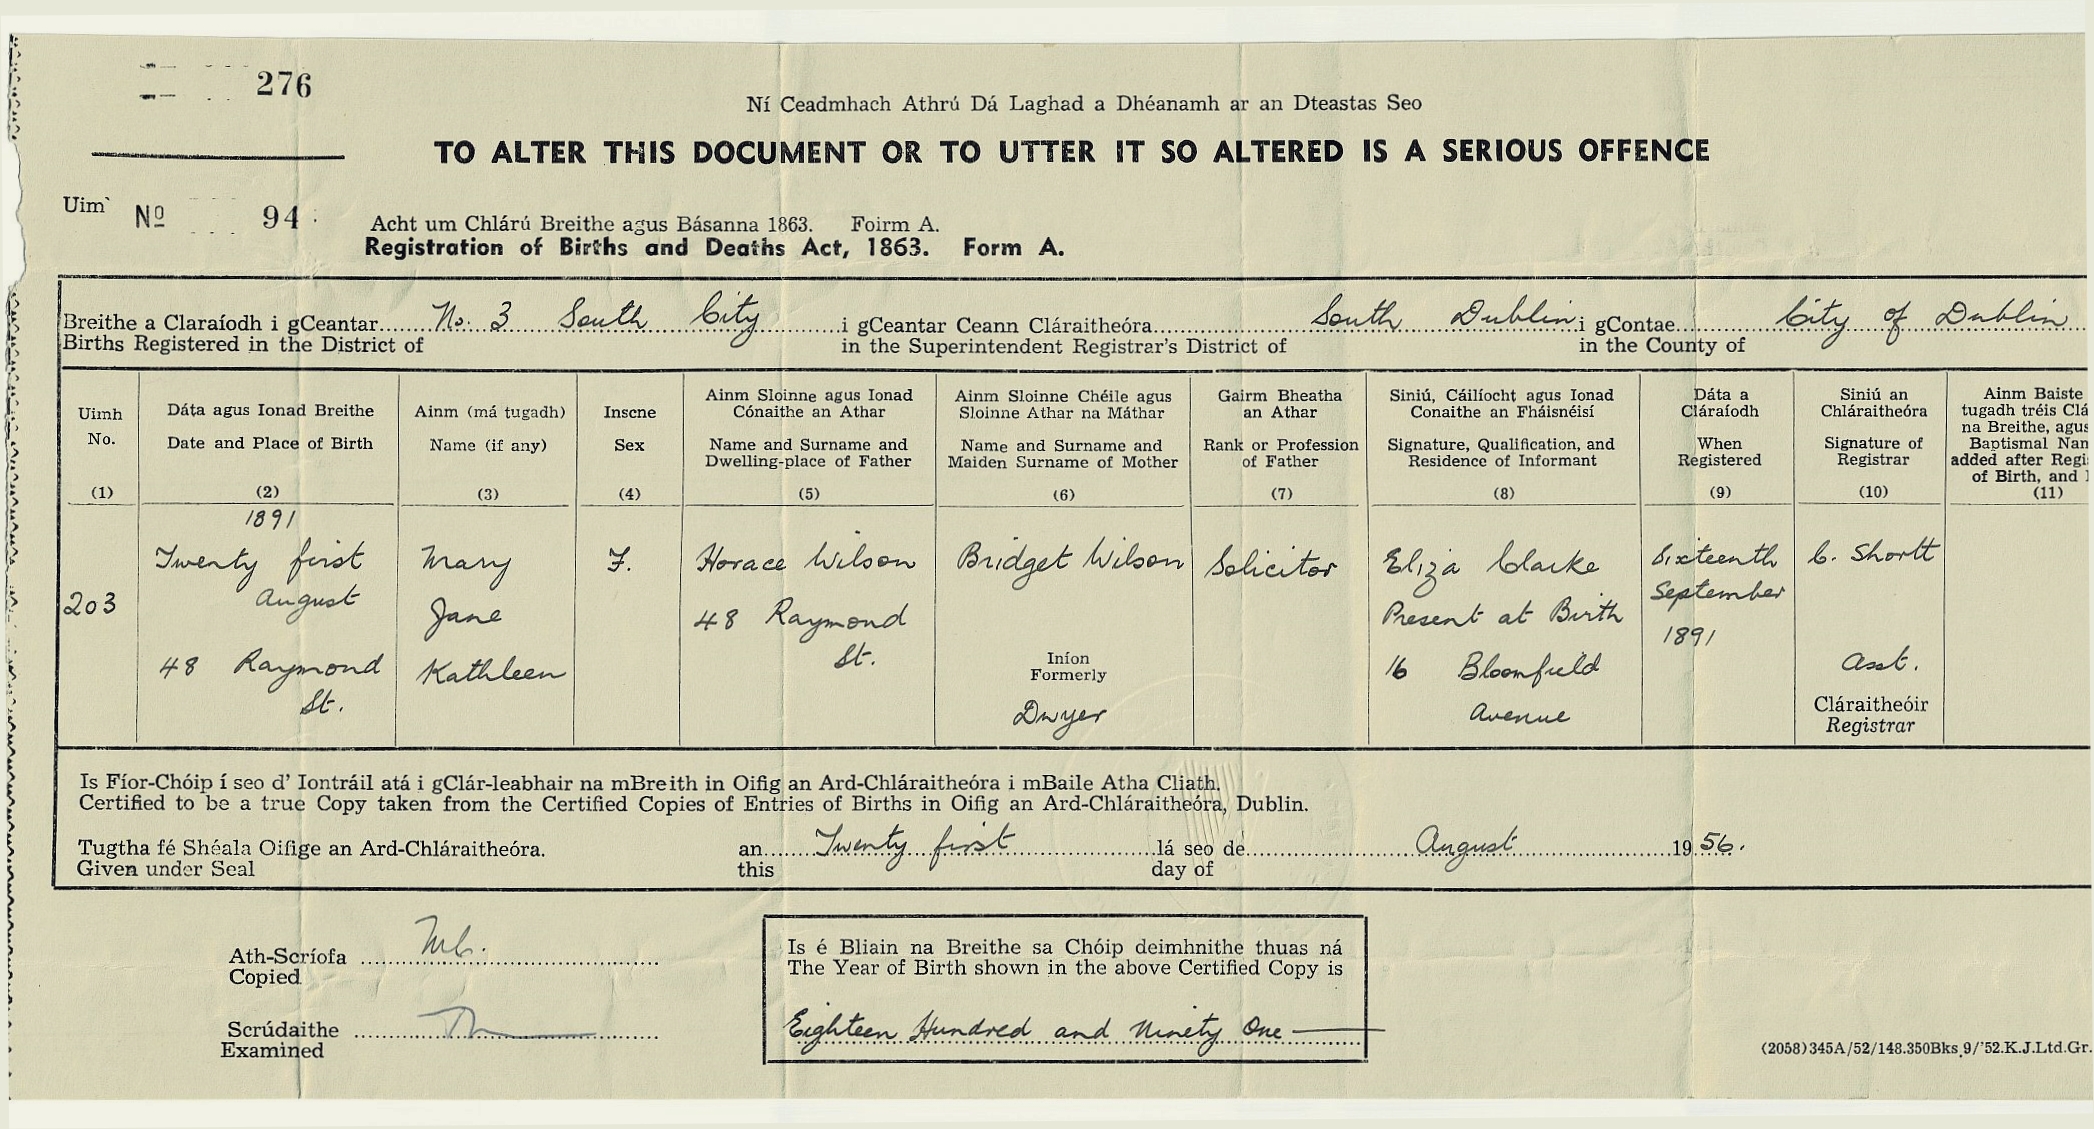 276
Ní Ceadmhach Athrú Dá Laghad a Dhéanamh ar an Dteastas Seo
TO ALTER THIS DOCUMENT OR TO UTTER IT SO ALTERED IS A SERIOUS OFFENCE
Uim'
No 94
Acht um Chlárú Breithe agus Básanna 1863. Foirm A.
Registration of Births and Deaths Act, 1863. Form A.
Breithe a Claraíodh i gCeantar No. 3 South City i gCeantar Ceann Cláraitheóra South Dublin i gContae City of Dublin
Births Registered in the District of in the Superintendent Registrar's District of in the County of
Uimh
No.
(1)
Dáta agus Ionad Breithe
Date and Place of Birth
(2)
Ainm (má tugadh)
Name (if any)
(3)
Inscne
Sex
(4)
Ainm Sloinne agus Ionad
Cónaithe an Athar
Name and Surname and
Dwelling-place of Father
(5)
Ainm Sloinne Chéile agus
Sloinne Athar na Máthar
Name and Surname and
Maiden Surname of Mother
(6)
Gairm Bheatha
an Athar
Rank or Profession
of Father
(7)
Siniú, Cáilíocht agus Ionad
Conaithe an Fháisnéisí
Signature, Qualification, and
Residence of Informant
(8)
Dáta a
Cláraíodh
When
Registered
(9)
Siniú an
Chláraitheóra
Signature of
Registrar
(10)
Ainm Baiste
tugadh tréis Clá
na Breithe, agus
Baptismal Nam
added after Regi
of Birth, and
(11)
203
1891
Twenty first
August
48 Raymond
St.
Mary
Jane
Kathleen
F.
Horace Wilson
48 Raymond
St.
Bridget Wilson
Iníon
Formerly
Dwyer
Solicitor
Eliza Clarke
Present at Birth
16 Bloomfield
Avenue
Sixteenth
September
1891
C. Shortt
Asst.
Cláraitheóir
Registrar
Is Fíor-Chóip í seo d' Iontráil atá i gClár-leabhair na mBreith in Oifig an Ard-Chláraitheóra i mBaile Atha Cliath.
Certified to be a true Copy taken from the Certified Copies of Entries of Births in Oifig an Ard-Chláraitheóra, Dublin.
Tugtha fé Shéala Oifige an Ard-Chláraitheóra. an Twenty first lá seo de August 1956.
Given under Seal this day of
Ath-Scríofa
Copied
Scrúdaithe
Examined
Is é Bliain na Breithe sa Chóip deimhnithe thuas ná
The Year of Birth shown in the above Certified Copy is
Eighteen Hundred and Ninety One
(2058)345A/52/148.350Bks.9/'52.K.J.Ltd.Gr.